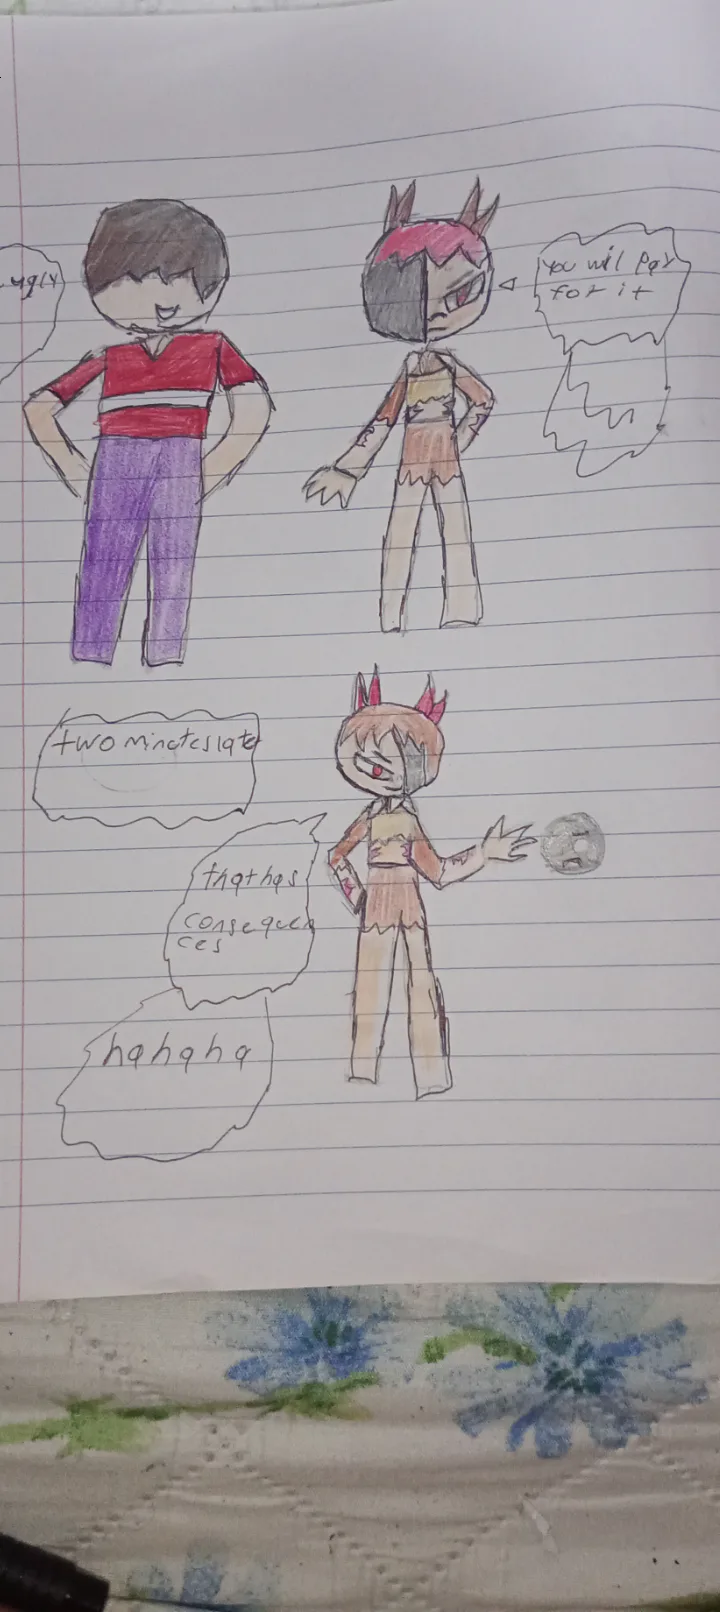 ugly
you will pay
for it
two minutes late
thathas
consequen
ces
hahaha